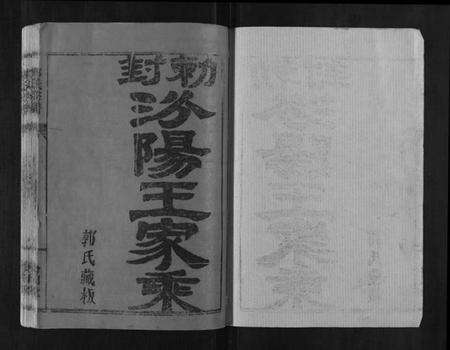 勅封
汾陽王家乘
郭氏藏板